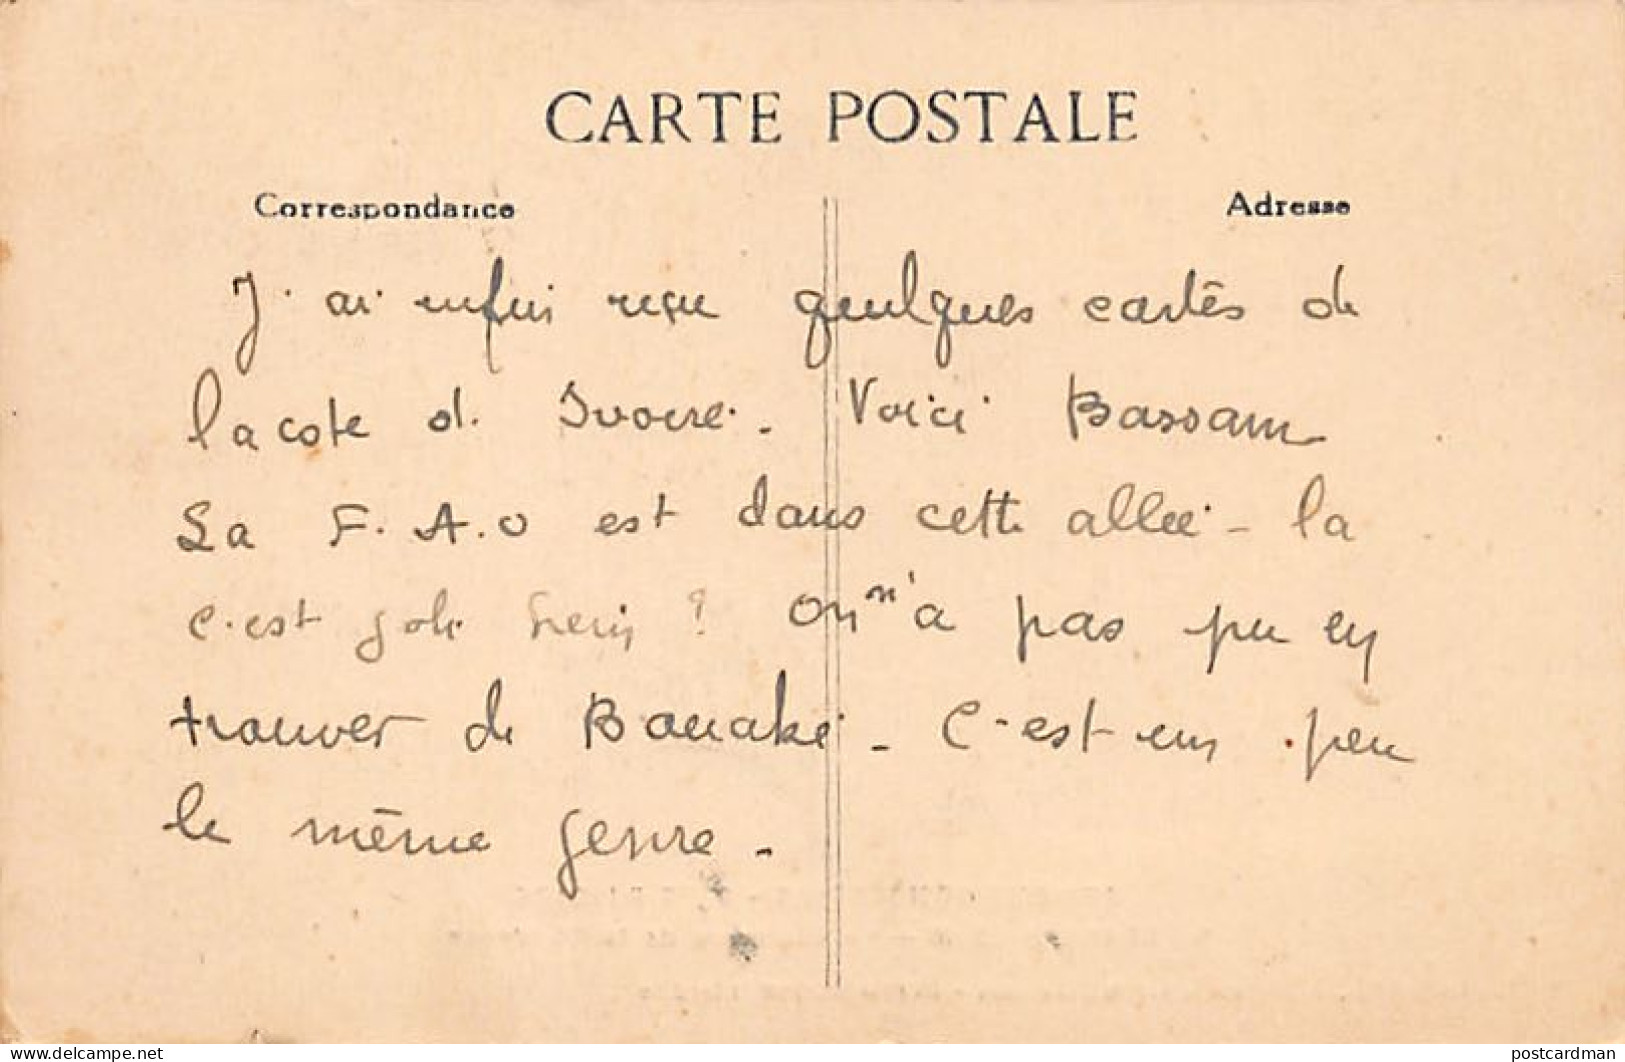 CARTE POSTALE
Correspondance Adresse
J'ai enfin reçu quelques cartes de
la cote d'Ivoire. Voici Bassam
La F.A.O est dans cette allée - la
c'est joli hein ? On n'a pas pu en
trouver de Bouaké - C'est un peu
le même genre -
delcampe.net
postcardman